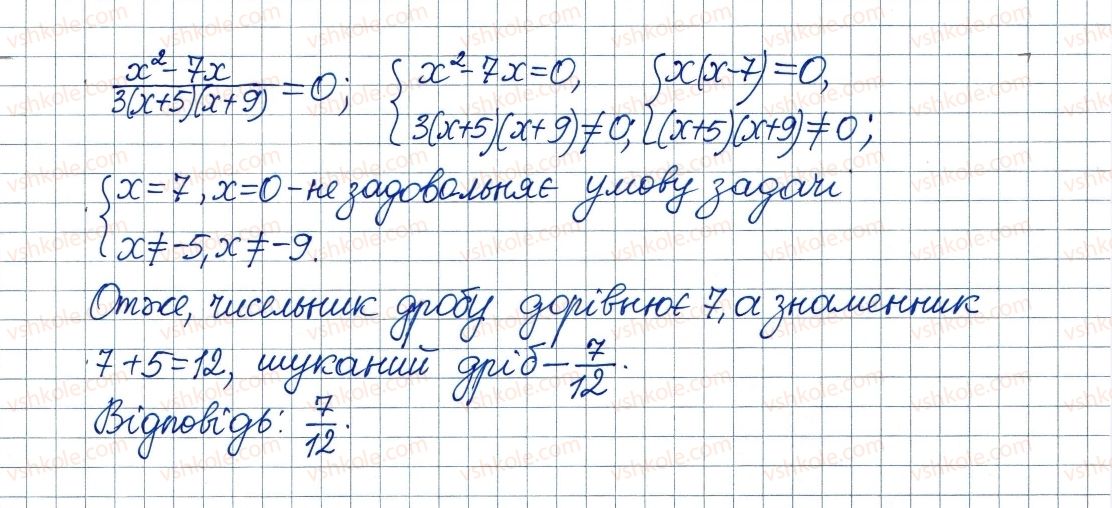 x² - 7x / 3(x+5)(x+9) = 0; { x² - 7x = 0, 3(x+5)(x+9) ≠ 0; { x(x-7) = 0, (x+5)(x+9) ≠ 0;
{ x = 7, x = 0 - не задовольняє умову задачі
x ≠ -5, x ≠ -9.
Отже, чисельник дробу дорівнює 7, а знаменник
7 + 5 = 12, шуканий дріб - 7/12.
Відповідь: 7/12.